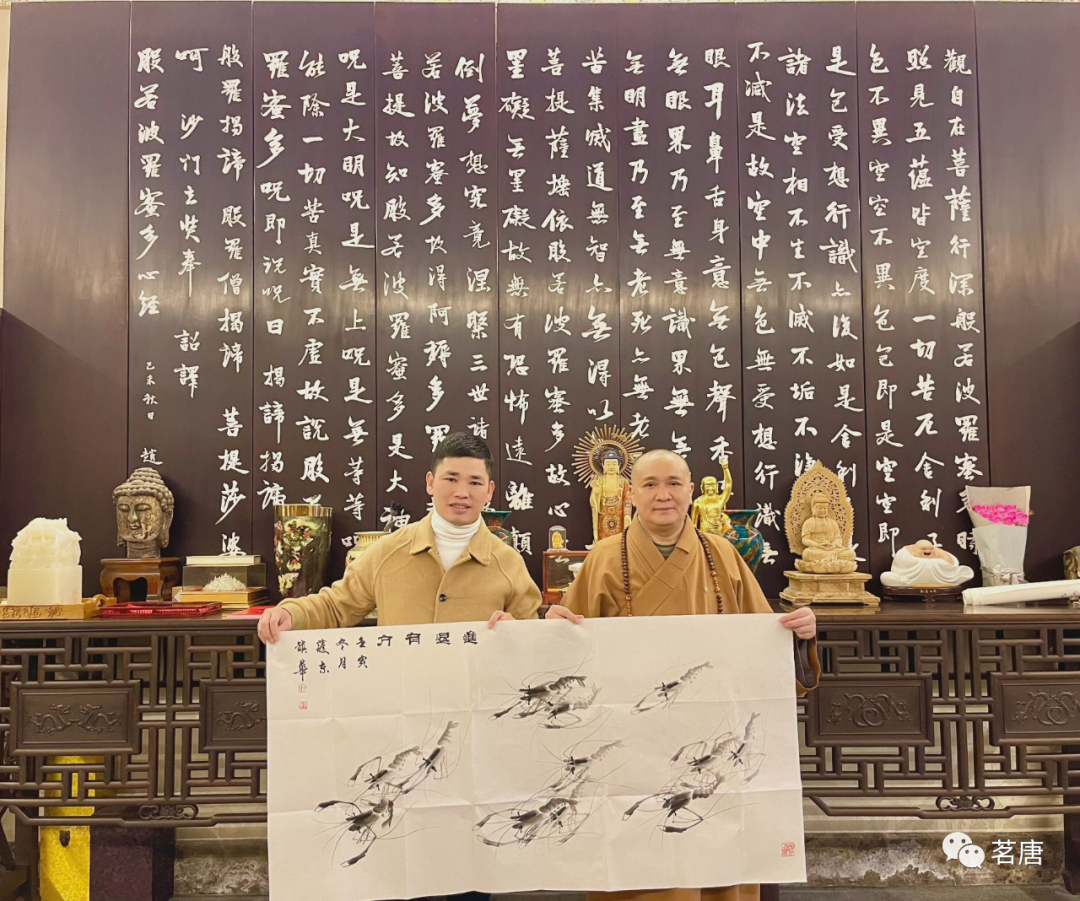 觀自在菩薩行深般若波羅蜜多時
照見五蘊皆空度一切苦厄舍利子
色不異空空不異色色即是空空即
是色受想行識亦復如是舍利
諸法空相不生不滅不垢不淨
不減是故空中无色無受想行識无
眼耳鼻舌身意无色聲香
无眼界乃至無意識界無无
无明盡乃至无老死亦無老
苦集滅道無智亦無得以
菩提薩埵依般若波羅蜜多故心
罣礙无罣礙故無有恐怖遠離顛
倒夢想究竟涅槃三世諸
若波羅蜜多故得阿耨多羅
菩提故知般若波羅蜜多是大神
呪是大明呪是無上呪是無等等呪
能除一切苦真實不虛故說般若
羅蜜多呪即說呪曰 揭諦揭諦
般羅揭諦 般羅僧揭諦 菩提莎婆
呵 沙門玄奘奉 詔譯
般若波羅蜜多心經 己未秋日 趙
進退有方
壬寅
冬月
茗唐